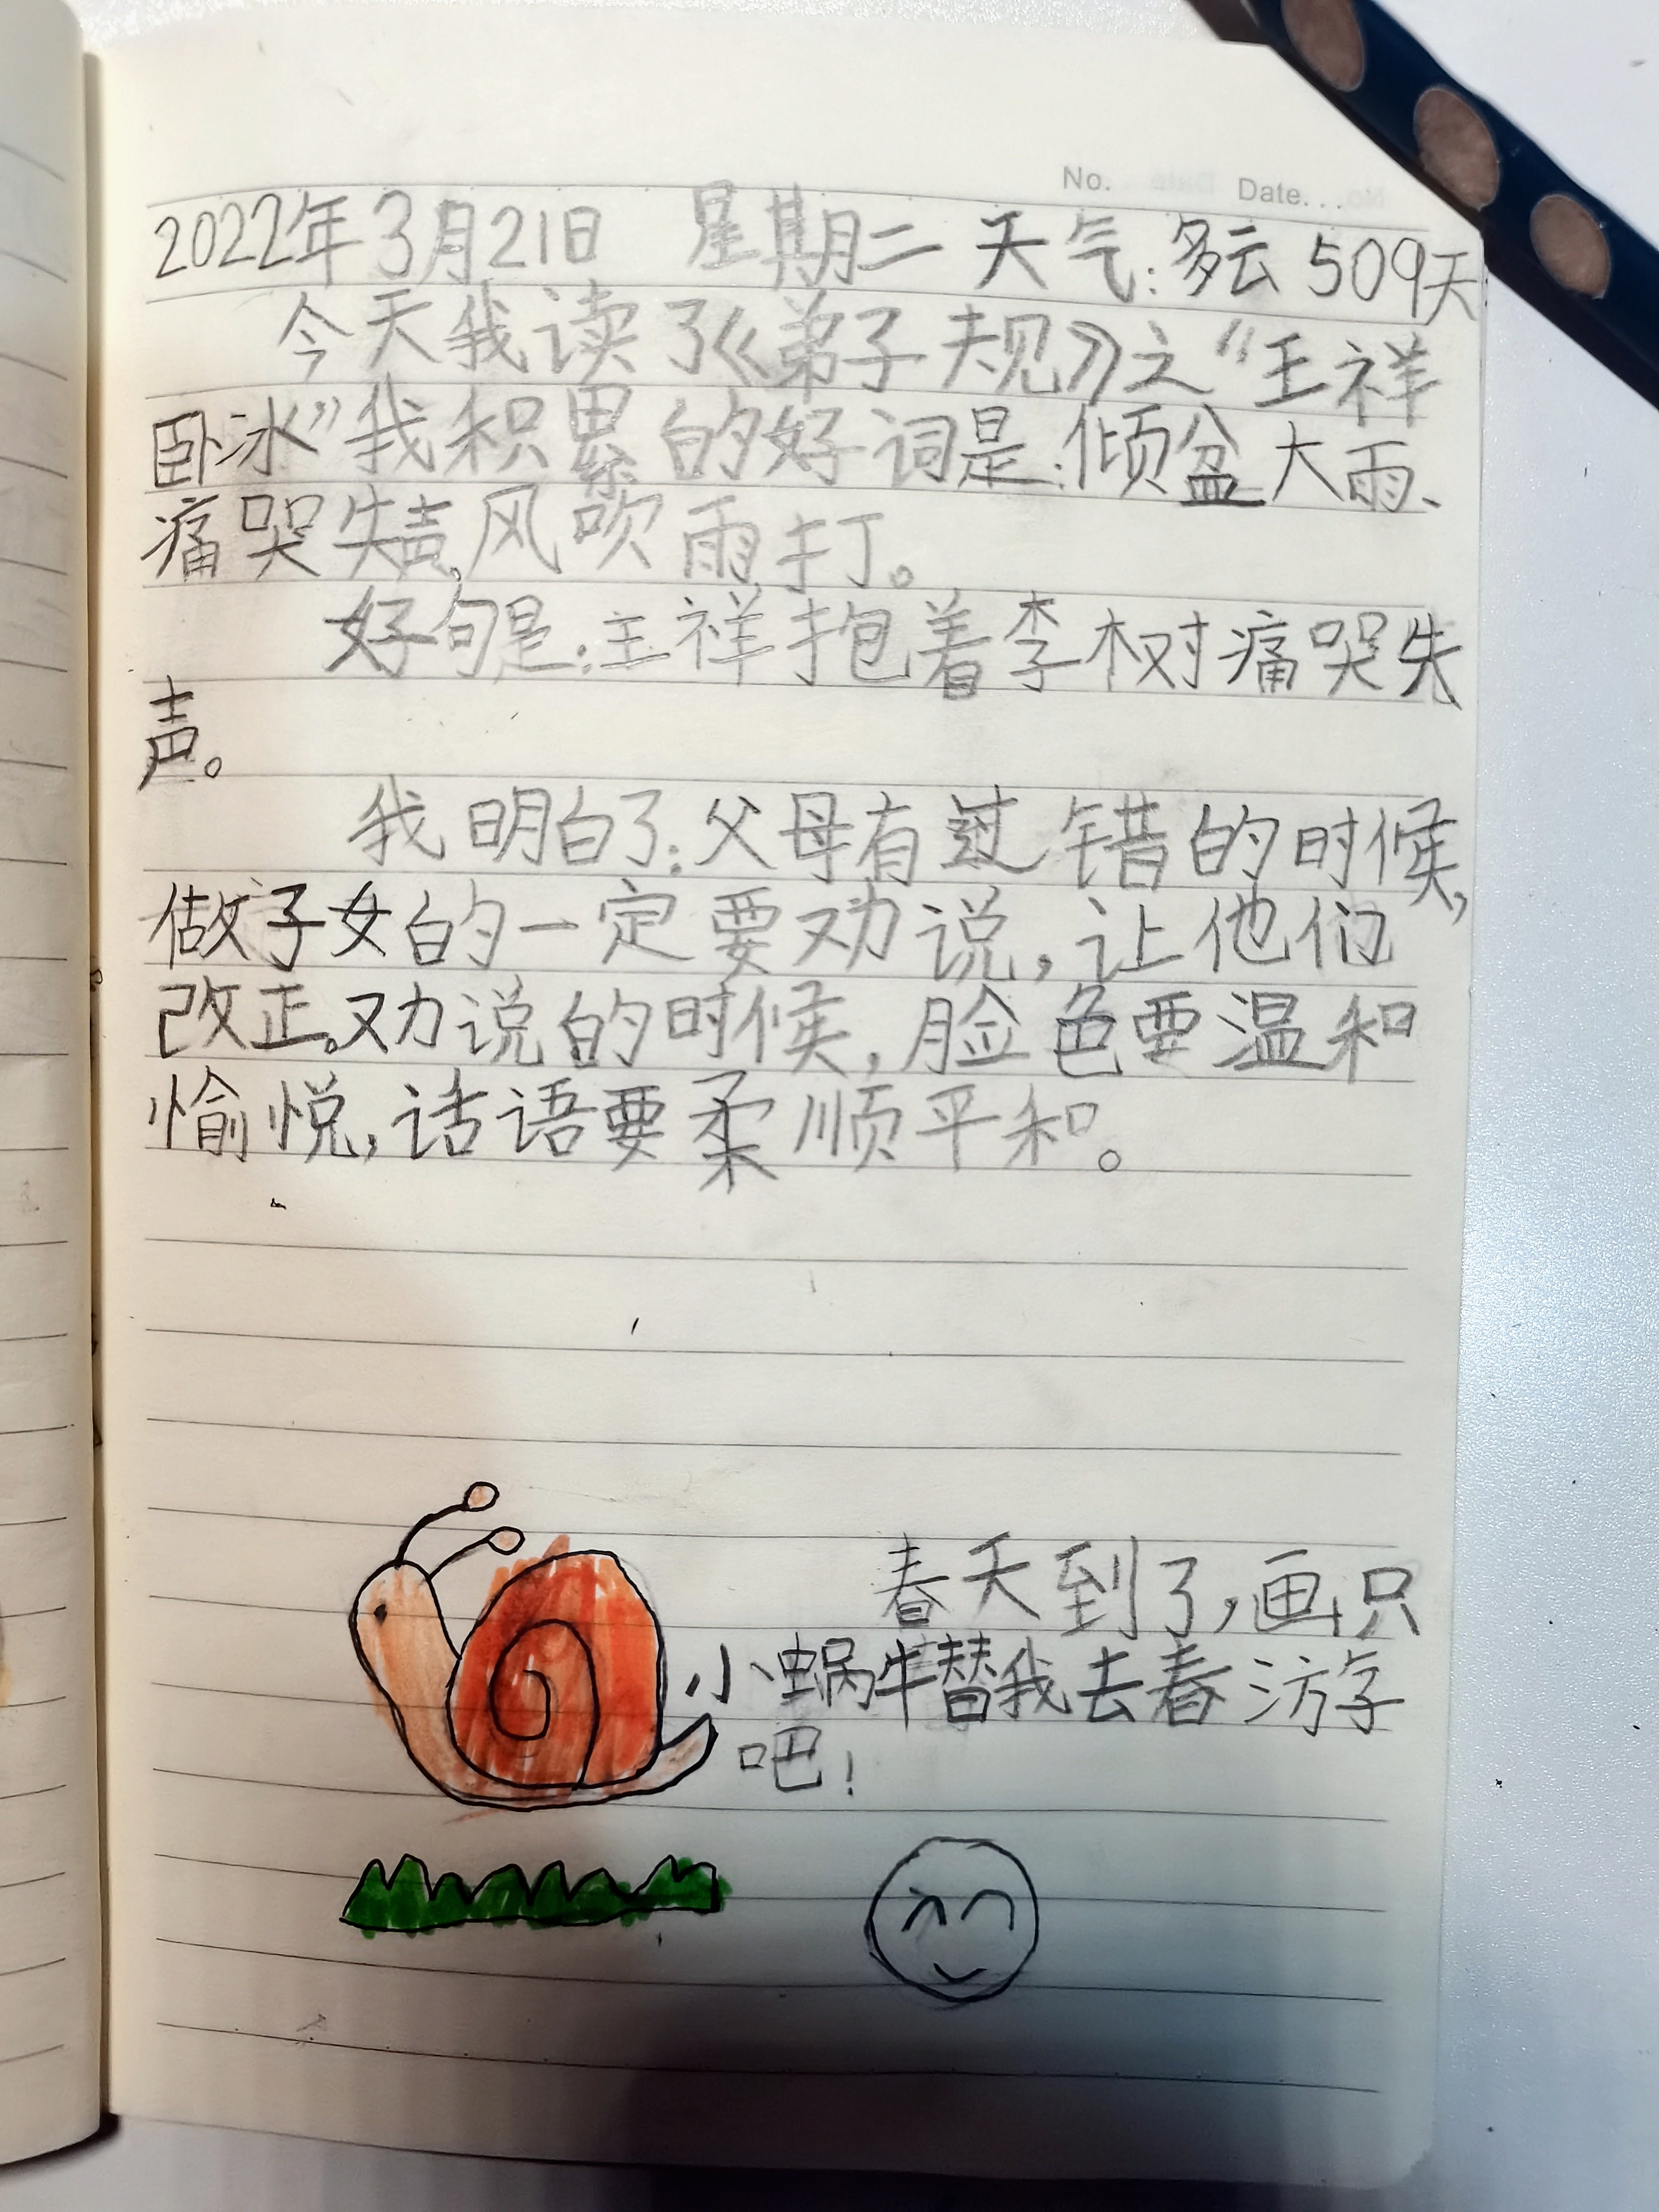 No. Date...
2022年3月21日 星期二 天气:多云 509天
今天我读了《弟子规》之“王祥
卧冰”我积累的好词是:倾盆大雨、
痛哭失声、风吹雨打。
好句是:王祥抱着李树痛哭失
声。
我明白了:父母有过错的时候,
做子女的一定要劝说,让他们
改正。劝说的时候,脸色要温和
愉悦,话语要柔顺平和。
春天到了,画只
小蜗牛替我去春游
吧!